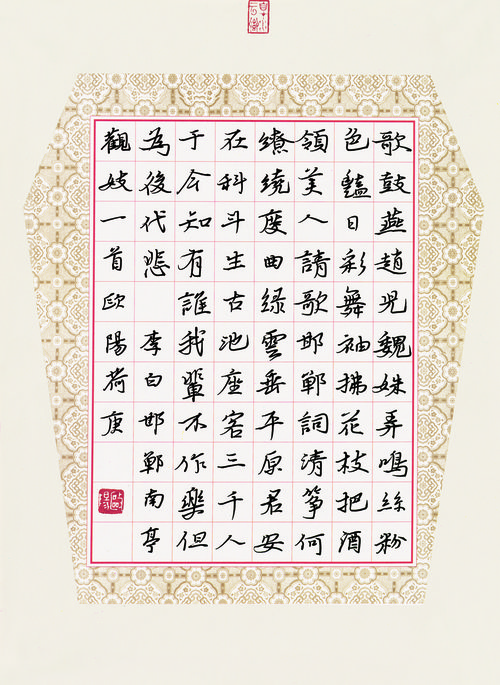 歌鼓燕趙兒魏姝弄鳴絲粉
色豔日彩舞袖拂花枝把酒
領美人請歌邯鄲詞清箏何
繚繞度曲綠雲垂平原君安
在科斗生古池座客三千人
于今知有誰我輩不作樂但
為後代悲 李白邯鄲南亭
觀妓一首歐陽荷庚